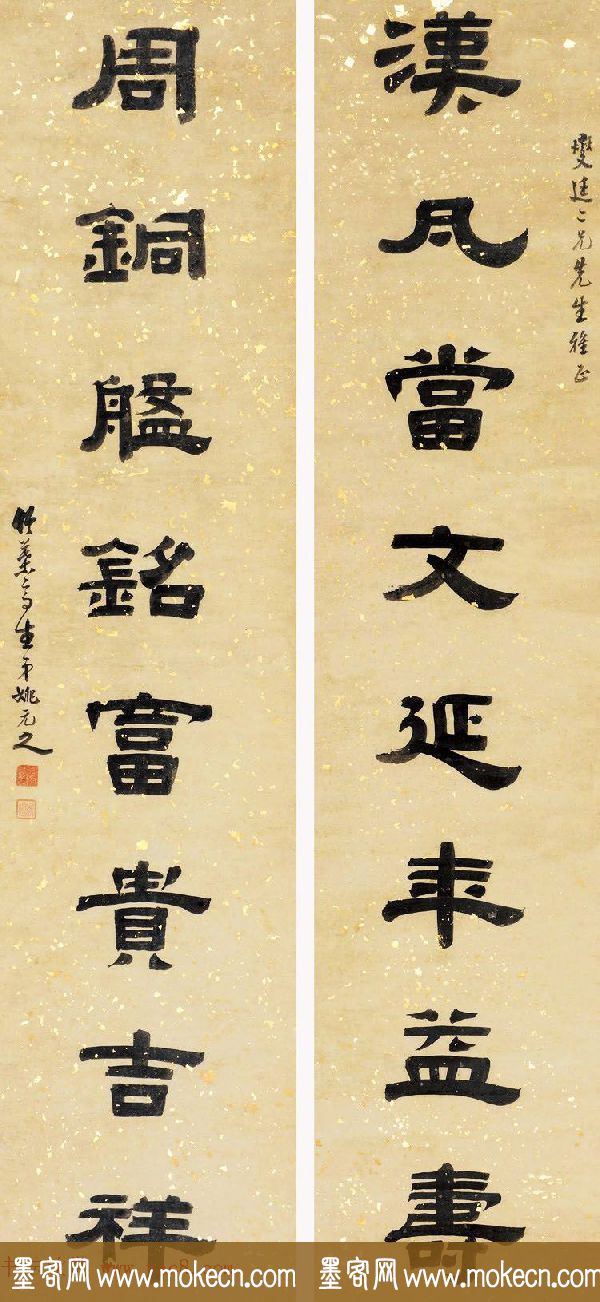 燮廷二兄先生雅正
漢瓦當文延年益壽
周銅盤銘富貴吉祥
竹葉亭生弟姚元之
墨客网 www.mokecn.com
墨客网 www.mokecn.com